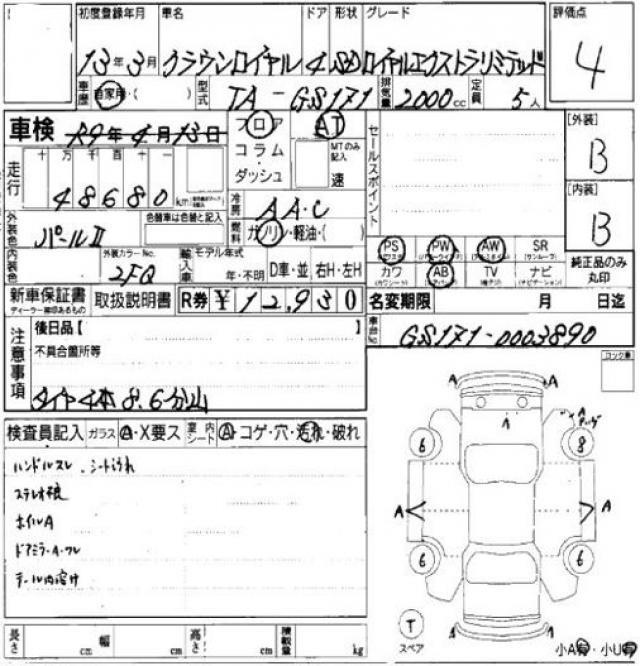 初度登録年月 車名 ドア 形状 グレード 評価点
13年3月 クラウンロイヤル 4 SD ロイヤルエクストラリミテッド 4
車歴 自家用・( ) 型式 TA-GS171 排気量 2000cc 定員 5人
車検 R9年4月13日 フロア AT セールスポイント [外装]
B
コラム・ダッシュ MTのみ記入 速
走行 十 万 千 百 十 一
48680 km
冷房 AAC [内装]
B
外装色 パールII 色替車は色替と記入 燃料 ガソリン・軽油・( )
PS PW AW SR 純正品のみ丸印
カワ AB TV ナビ
内装色 外装カラーNo. 2FQ 輸入車 モデル年式 年・不明 D車・並 右H・左H
新車保証書 取扱説明書 R券 ¥12,930 名変期限 月 日迄
ディーラー捺印あるもの
車台No. GS171-0003890
注意事項 後日品【 】
不具合箇所等
タイヤ4本8.6分山
ロック車
検査員記入 ガラス A・X要ス 室内シート A・コゲ・穴・汚れ・破れ
ハンドルスレ、シート汚れ
ホイルA
ドアミラーA・ワレ
A A
A A
6 8
A A
6 6
T
スペア
A A
長さ cm 幅 cm 高さ cm 積載量 kg
小A有・小U有